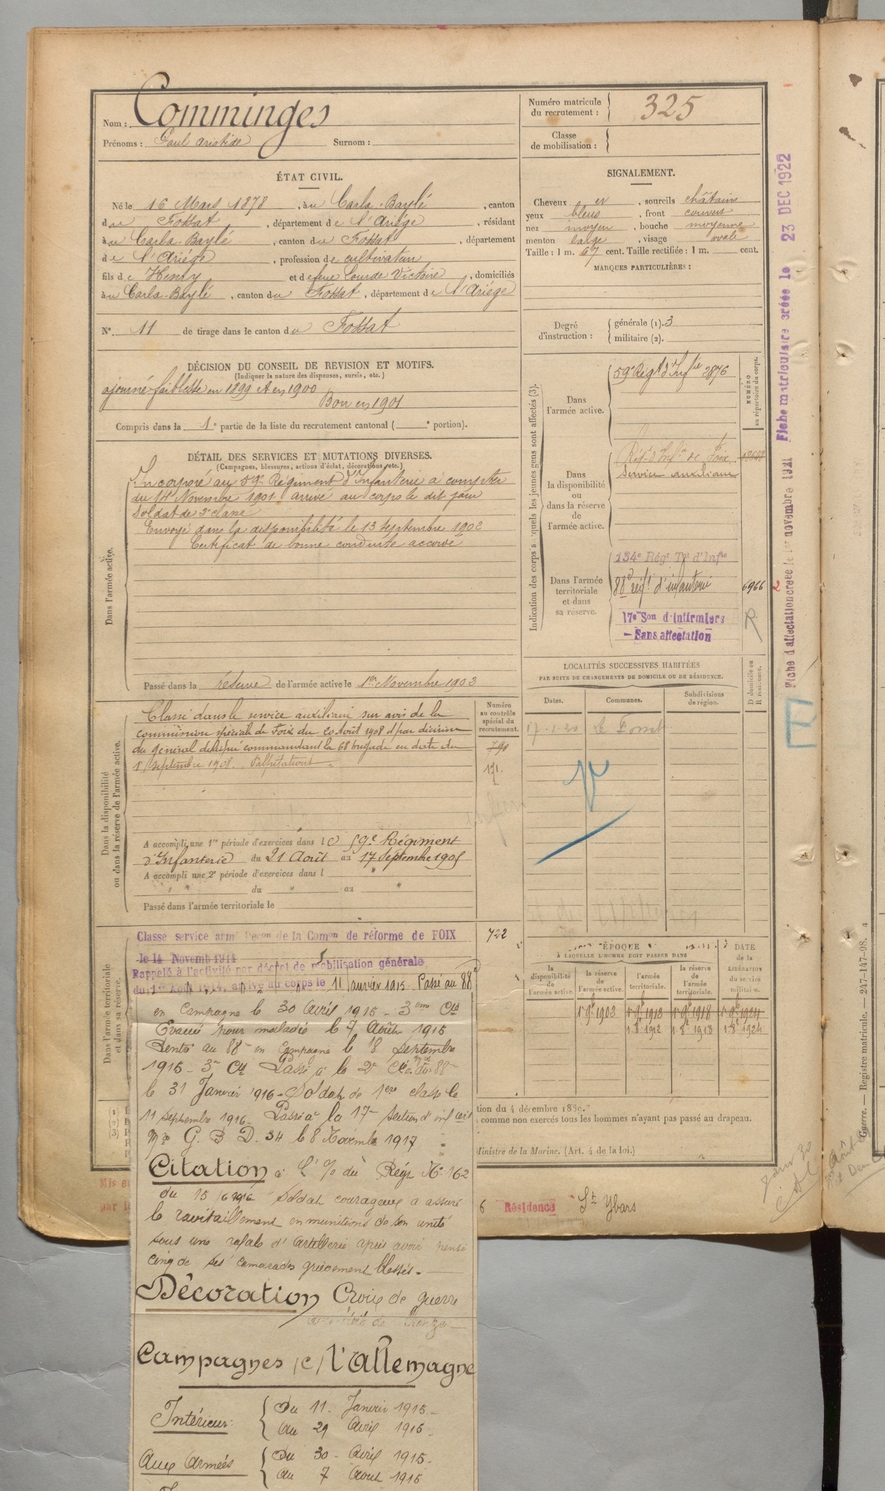 Nom : Comminges
Prénoms : Paul Aristide Surnom :
Numéro matricule du recrutement : 325
Classe de mobilisation :
ÉTAT CIVIL.
Né le 16 Mars 1878, à u Carla-Baylé, canton
du Fossat, département de l'Ariège, résidant
à u Carla-Baylé, canton du Fossat, département
de l'Ariège, profession de cultivateur
fils de Henry et de feue Victoire, domiciliés
à u Carla-Baylé, canton du Fossat, département de l'Ariège
N° 11 de tirage dans le canton du Fossat
SIGNALEMENT.
Cheveux , sourcils châtains
yeux bleus , front couvert
nez moyen , bouche moyenne
menton large , visage ovale
Taille : 1 m. 67 cent. Taille rectifiée : 1 m. cent.
MARQUES PARTICULIÈRES :
Degré d'instruction : générale (1). 3
militaire (2).
DÉCISION DU CONSEIL DE REVISION ET MOTIFS.
(Indiquer la nature des dispenses, sursis, etc.)
ajourné faiblesse en 1899 et en 1900
Bon en 1901
Compris dans la 1e partie de la liste du recrutement cantonal ( e portion).
DÉTAIL DES SERVICES ET MUTATIONS DIVERSES.
(Campagnes, blessures, actions d'éclat, décorations, etc.)
Dans l'armée active.
Incorporé au 59e Régiment d'Infanterie à compter
du 14 Novembre 1901, arrivé au corps le dit jour
soldat de 2e classe
Envoyé dans la disponibilité le 13 Septembre 1902
Certificat de bonne conduite accordé
Passé dans la réserve de l'armée active le 1er Novembre 1903
Indication des corps auxquels les jeunes gens sont affectés (3).
NUMÉRO au répertoire du corps.
Dans l'armée active.
59e Régt d'Infie 2876
Dans la disponibilité ou dans la réserve de l'armée active.
Régt d'Infie de Foix
Service auxiliaire
Dans l'armée territoriale et dans sa réserve.
134e Régt Tal d'Infie
88e régt d'infanterie 6966
17e Son d'infirmiers
- Sans affectation
R
Dans la disponibilité ou dans la réserve de l'armée active.
Numéro au contrôle spécial du recrutement.
Classé dans le service auxiliaire sur avis de la
commission spéciale de Foix du 20 Août 1908 et par décision
du général de brigade commandant la 68 brigade en date du
1 septembre 1908. Palpitations
A accompli une 1re période d'exercices dans le 59e Régiment
d'Infanterie du 21 Août au 17 Septembre 1905
A accompli une 2e période d'exercices dans l
du au
Passé dans l'armée territoriale le
LOCALITÉS SUCCESSIVES HABITÉES
PAR SUITE DE CHANGEMENTS DE DOMICILE OU DE RÉSIDENCE.
Dates. Communes. Subdivisions de région. D domicile ou R résidence.
17-1-20 Le Fossat
ÉPOQUE
À LAQUELLE L'HOMME DOIT PASSER DANS
DATE de la LIBÉRATION du service militaire.
la disponibilité de l'armée active. la réserve de l'armée active. l'armée territoriale. la réserve de l'armée territoriale.
Dans l'armée territoriale et dans sa réserve.
Classé service armé Décon de la Comon de réforme de FOIX 722
le 14 Novembt 1914
Rappelé à l'activité par décret de mobilisation générale
du 1er Août 1914, arrivé au corps le 11 janvier 1915. Passé au 88e
en campagne le 30 Avril 1915 - 3eme Cie
Evacué pour maladie le 7 Août 1915
Rentré au 88e en Campagne le 18 Septembre
1915 - 3e Cie Passé à la 2e Cie du 88e
le 31 Janvier 1916 - Soldat de 1ere classe le
11 septembre 1916. Passé à la 17e section d'infirm
G. B. D. 34 le 8 Novembre 1917
Citation à l'O/ du Régt No 162
du 15 soldat courageux a assuré
le ravitaillement en munitions de son unité
sous une rafale d'artillerie après avoir pansé
cinq de ses camarades grièvement blessés.
Décoration Croix de guerre
étoile de bronze
Campagnes (c) l'Allemagne
Intérieur : Du 11 - Janvier 1915 -
au 29 Avril 1915 -
Aux Armées Du 30 - Avril 1915 -
au 7 Août 1915
tion du 4 décembre 1889.
comme non exercés tous les hommes n'ayant pas passé au drapeau.
Ministre de la Marine. (Art. 4 de la loi.)
Résidence St Ybars
Fiche d'affectation créée le 1er novembre 1921 Fiche matriculaire créée le 23 DEC 1922
Guerre. — Registre matricule. — 247-147-98.